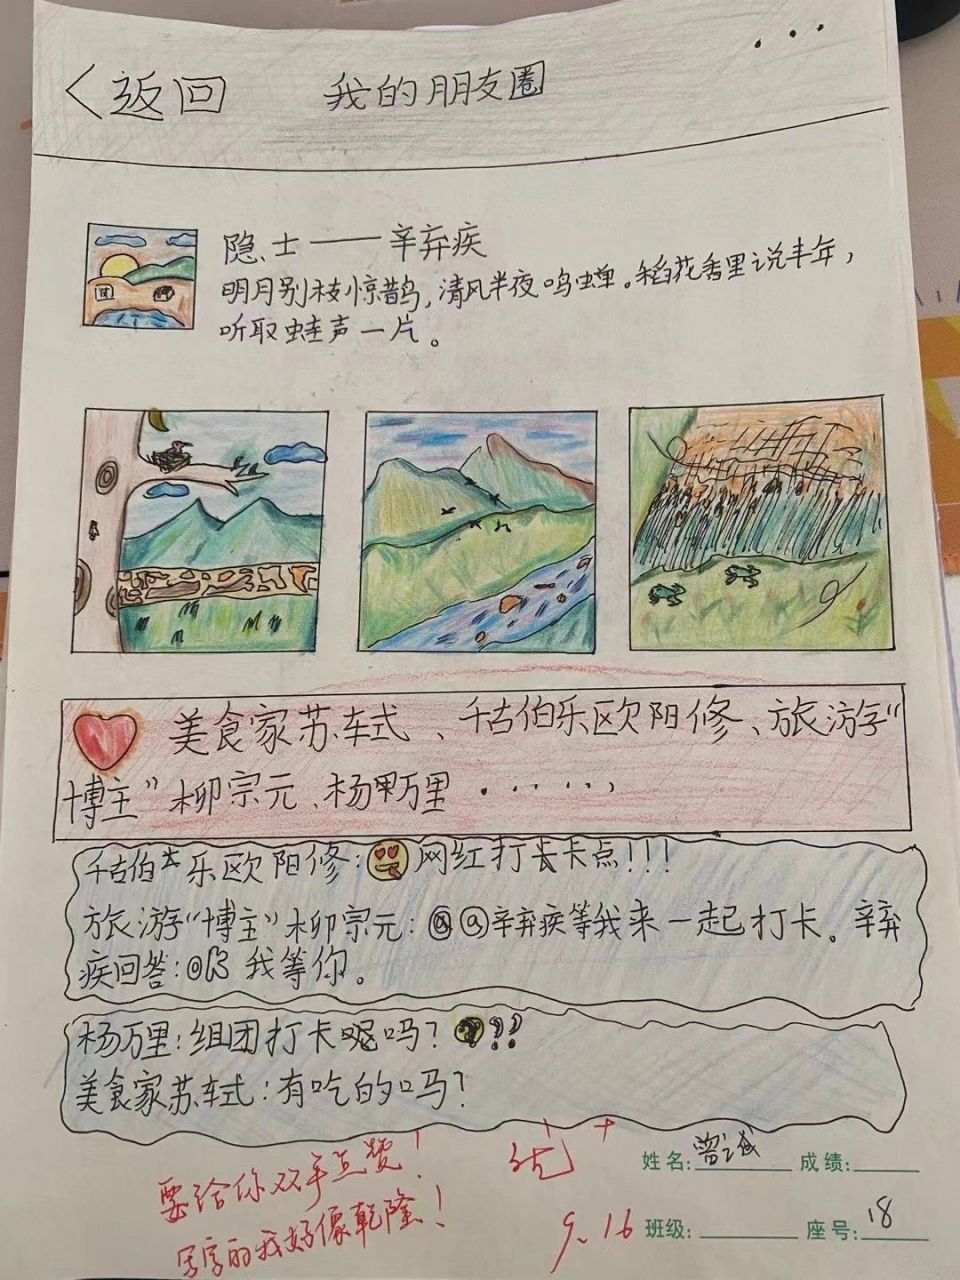 <返回 我的朋友圈 ...
隐士——辛弃疾
明月别枝惊鹊，清风半夜鸣蝉。稻花香里说丰年，
听取蛙声一片。
美食家苏车式、千古伯乐欧阳修、旅游“
博主”柳宗元、杨万里······
千古伯乐欧阳修：网红打卡点！！！
旅游“博主”柳宗元：@@辛弃疾等我来一起打卡。辛弃
疾回答：ok 我等你。
杨万里：组团打卡呢吗？??
美食家苏车式：有吃的吗？
要给你双手点赞！
优+
写字的我好像乾隆！
9.16
姓名：曾诚 成绩：
班级： 座号：18